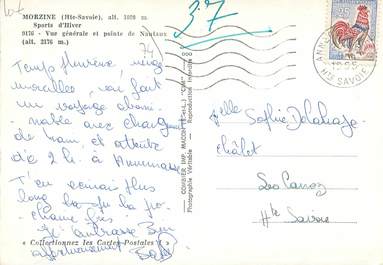 MORZINE (Hte-Savoie), alt. 1000 m.
Sports d'Hiver
9176 - Vue générale et pointe de Nantaux
(alt. 2176 m.)
37
74
Temps pluvieux, neige
mouillée, on fait
un voyage abomi-
nable avec changement
de train, et attente
de 2 h. à Annemasse
T'en écrirai plus
long la prochaine fois
Je t'embrasse bien
affectueusement
« Collectionnez les Cartes Postales ! »
COMBIER IMP. MACON (S.-et-L.) "CIM"
Photographie Véritable - Reproduction interdite
0,25
HTE SAVOIE
Melle Sophie Delahaye
châlet
Les Carroz
Hte Savoie